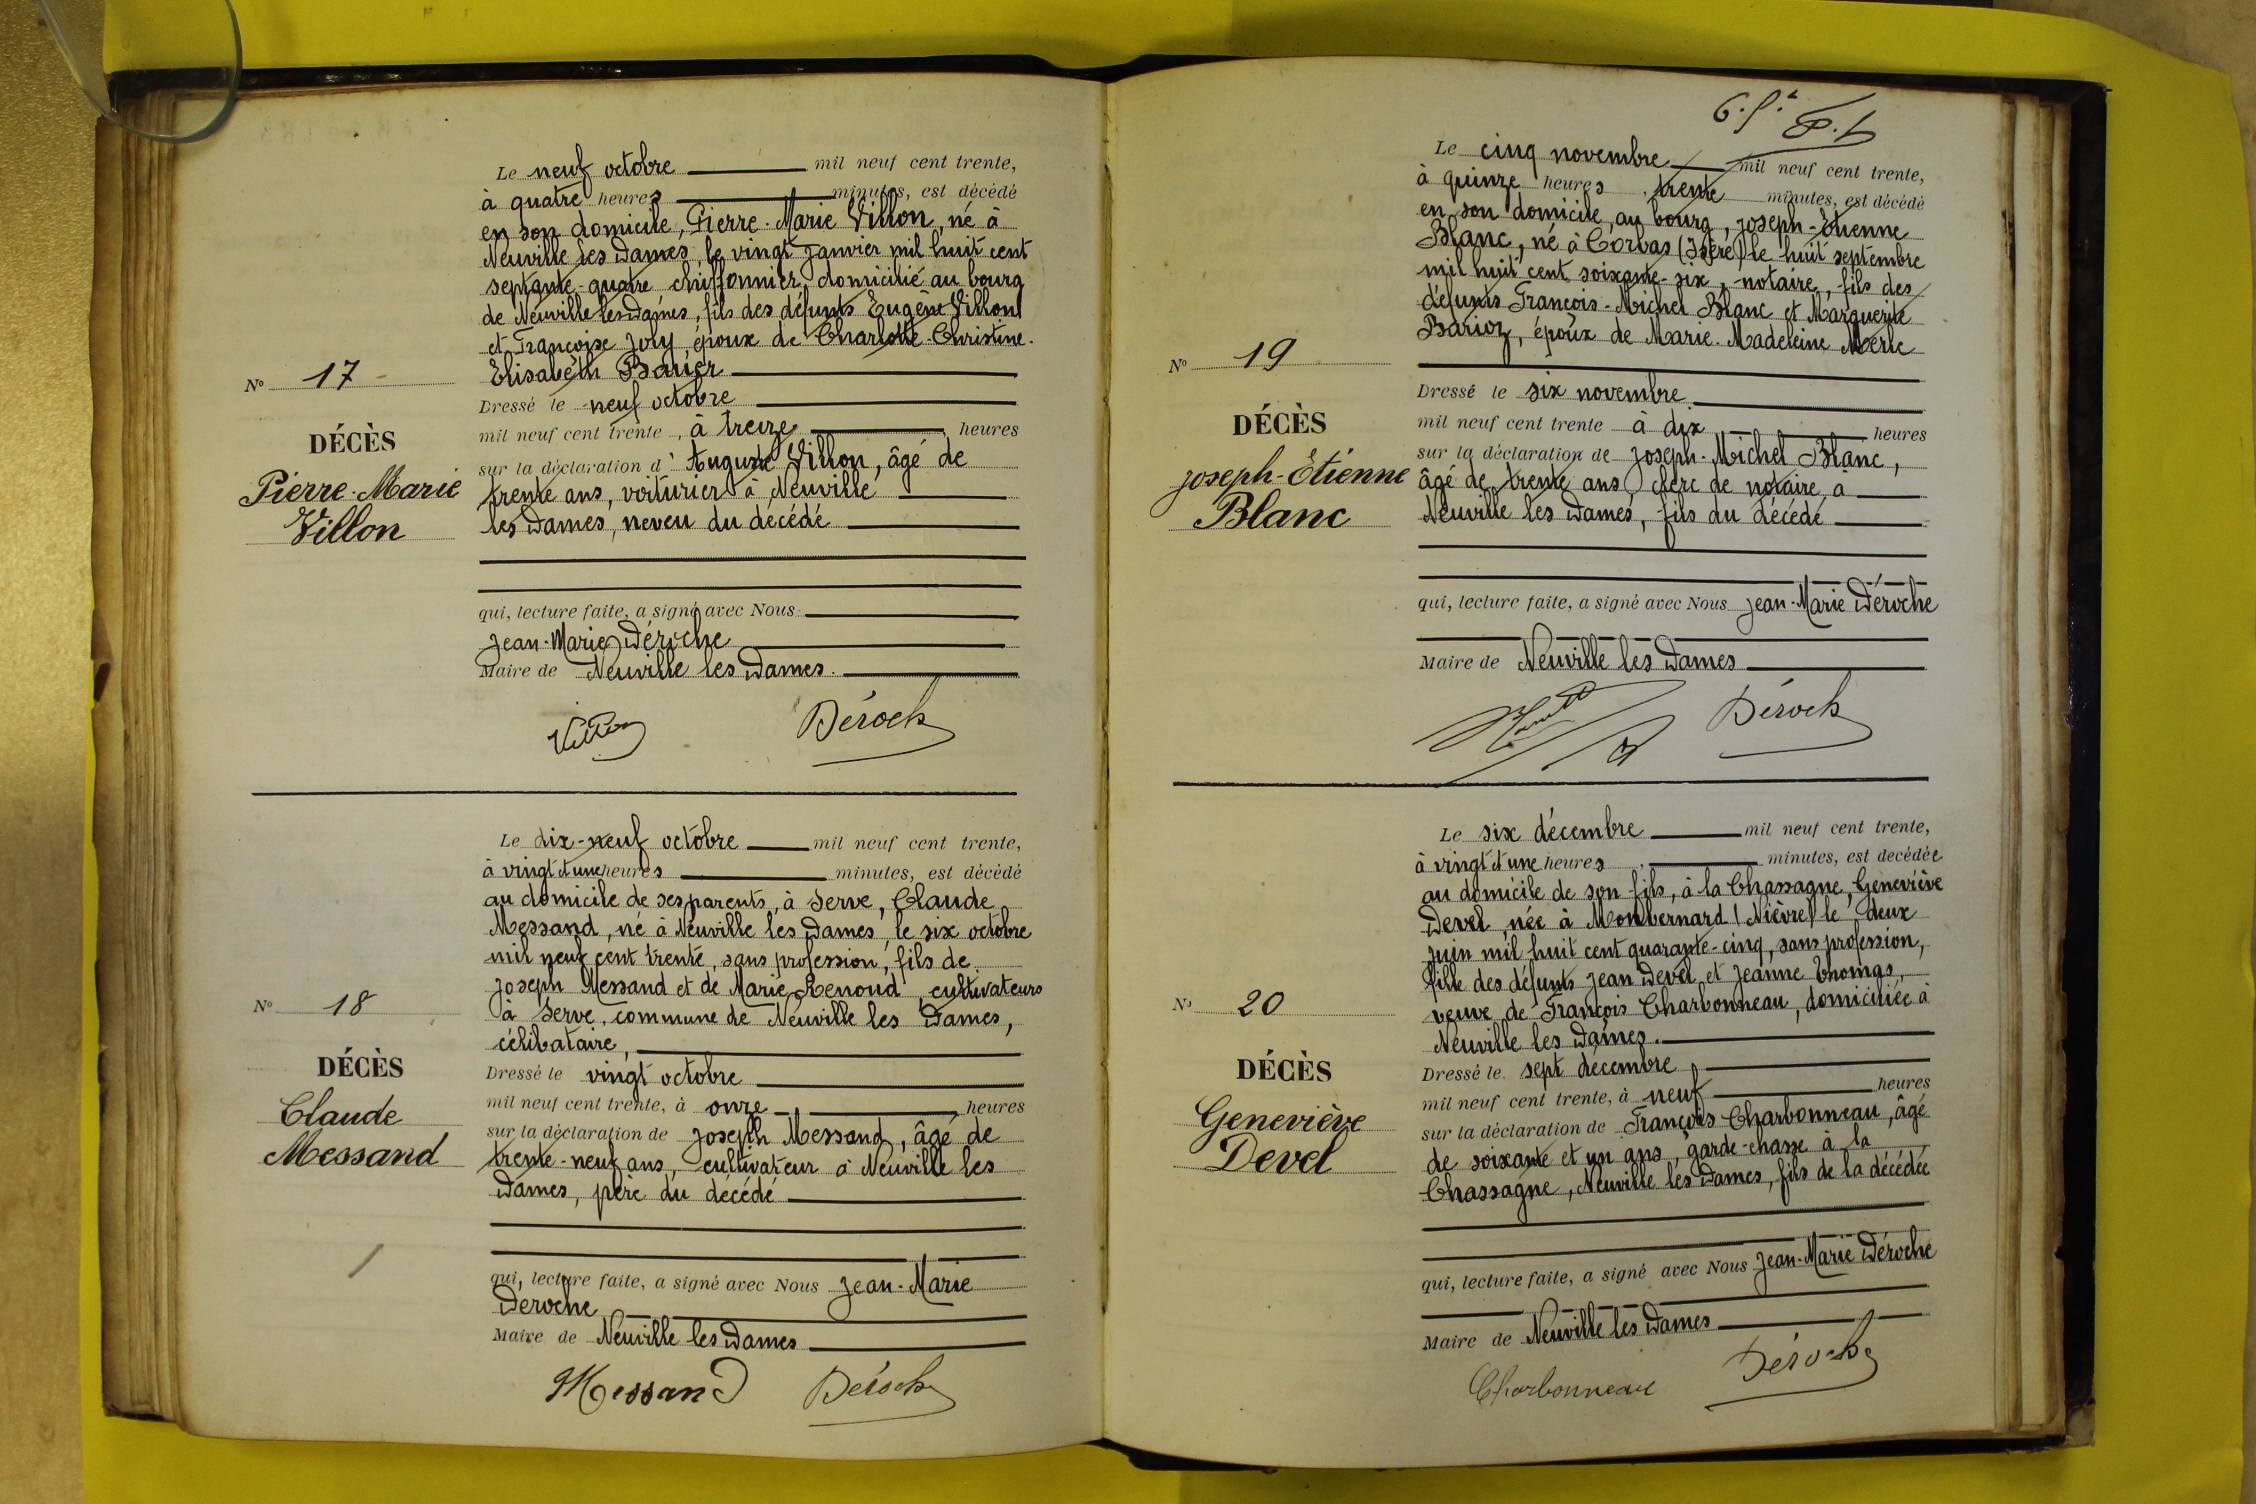 Le neuf octobre mil neuf cent trente,
à quatre heures minutes, est décédé
en son domicile, Pierre-Marie Villon, né à
Neuville les Dames, le vingt janvier mil huit cent
septante-quatre chiffonnier, domicilié au bourg
de Neuville les Dames, fils des défunts Eugène Villon
et Françoise Joly, époux de Charlotte-Christine-
Elisabeth Barier
Nº 17
DÉCÈS
Pierre-Marie
Villon
Dressé le neuf octobre
mil neuf cent trente, à treize heures
sur la déclaration d'Auguste Villon, âgé de
trente ans, voiturier à Neuville
les Dames, neveu du décédé
qui, lecture faite, a signé avec Nous
Jean-Marie Déroche
Maire de Neuville les Dames.
Villon Déroche
Le dix-neuf octobre mil neuf cent trente,
à vingt et une heures minutes, est décédé
au domicile de ses parents, à Serve, Claude
Messand, né à Neuville les Dames, le six octobre
mil neuf cent trente, sans profession, fils de
Joseph Messand et de Marie Renoud, cultivateurs
à Serve, commune de Neuville les Dames,
célibataire,
Nº 18
DÉCÈS
Claude
Messand
Dressé le vingt octobre
mil neuf cent trente, à onze heures
sur la déclaration de Joseph Messand, âgé de
trente-neuf ans, cultivateur à Neuville les
Dames, père du décédé
qui, lecture faite, a signé avec Nous Jean-Marie
Déroche
Maire de Neuville les Dames
Messand Déroche
Le cinq novembre mil neuf cent trente,
à quinze heures trente minutes, est décédé
en son domicile, au bourg, Joseph-Etienne
Blanc, né à Corbas (Isère) le huit septembre
mil huit cent soixante-six, notaire, fils des
défunts François-Michel Blanc et Marguerite
Barioz, époux de Marie-Madeleine Merle
Nº 19
DÉCÈS
Joseph-Etienne
Blanc
Dressé le six novembre
mil neuf cent trente à dix heures
sur la déclaration de Joseph-Michel Blanc,
âgé de trente ans, clerc de notaire, à
Neuville les Dames, fils du décédé
qui, lecture faite, a signé avec Nous Jean-Marie Déroche
Maire de Neuville les Dames
Déroche
Le six décembre mil neuf cent trente,
à vingt et une heures minutes, est decédée
au domicile de son fils, à la Chassagne, Geneviève
Devel, née à Monbernard (Nièvre) le deux
juin mil huit cent quarante-cinq, sans profession,
fille des défunts Jean Devel et Jeanne Thomas,
veuve de François Charbonneau, domiciliée à
Neuville les Dames.
Nº 20
DÉCÈS
Geneviève
Devel
Dressé le sept décembre
mil neuf cent trente, à neuf heures
sur la déclaration de François Charbonneau, âgé
de soixante et un ans, garde-chasse à la
Chassagne, Neuville les Dames, fils de la décédée
qui, lecture faite, a signé avec Nous Jean-Marie Déroche
Maire de Neuville les Dames
Charbonneau Déroche